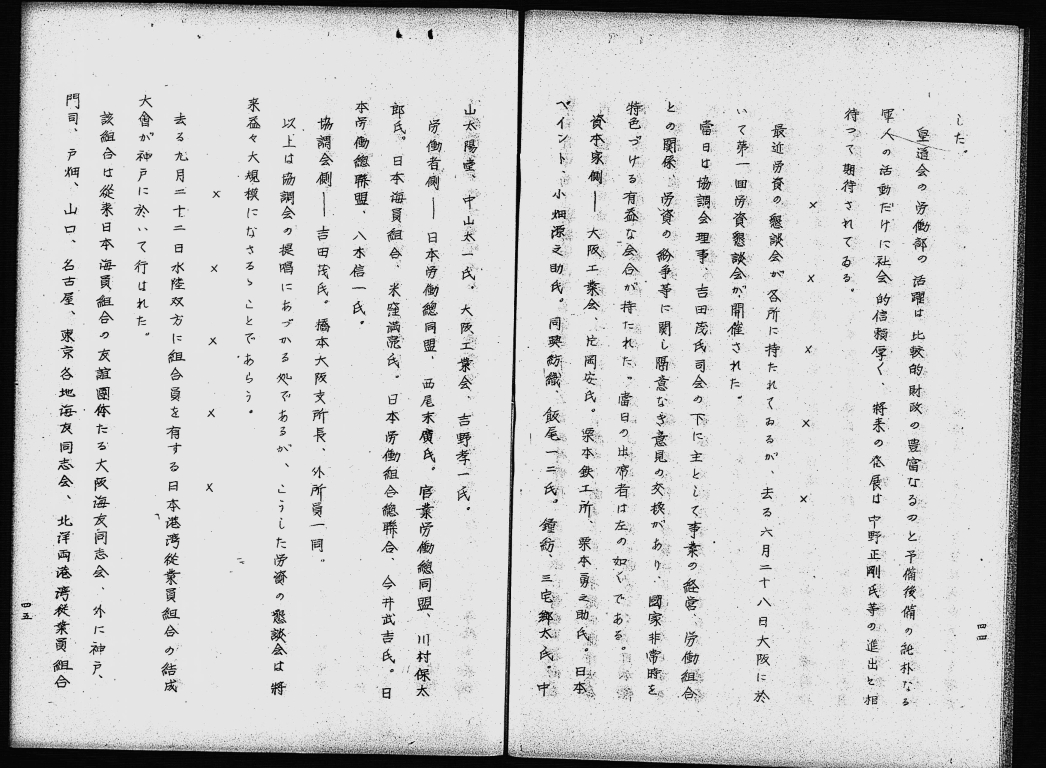 した。
皇道会の労働部の活躍は比較的財政の豊富なるのと予備後備の純朴なる
軍人の活動だけに社会的信頼厚く、将来の発展は中野正剛氏等の進出と相
待つて期待されてゐる。
×　×　×　×　×
最近労資の懇談会が各所に持たれてゐるが、去る六月二十八日大阪に於
いて第一回労資懇談会が開催された。
當日は協調会理事、吉田茂氏司会の下に主として事業の経営、労働組合
との関係、労資の紛争等に関し隔意なき意見の交換があり、國家非常時を
特色づける有益な会合が持たれた。當日の出席者は左の如くである。
資本家側――大阪工業会、片岡安氏。栗本鉄工所、栗本勇之助氏。日本
ペイント、小畑源之助氏。同興紡織、飯尾一二氏。鐘紡、三宅郷太氏。中
四四
山太陽堂、中山太一氏。大阪工業会、吉野孝一氏。
労働者側――日本労働總同盟、西尾末廣氏。官業労働總同盟、川村保太
郎氏。日本海員組合、米窪満亮氏。日本労働組合總聯合、今井武吉氏。日
本労働總聯盟、八木信一氏。
協調会側――吉田茂氏。橋本大阪支所長、外所員一同。
以上は協調会の提唱にあづかる処であるが、こうした労資の懇談会は将
来益々大規模になさるゝことであらう。
×　×　×　×　×
去る九月二十二日水陸双方に組合員を有する日本港湾従業員組合の結成
大會が神戸に於いて行はれた。
該組合は従来日本海員組合の友誼團体たる大阪海友同志会、外に神戸、
門司、戸畑、山口、名古屋、東京各地海友同志会、北洋両港湾従業員組合
四五